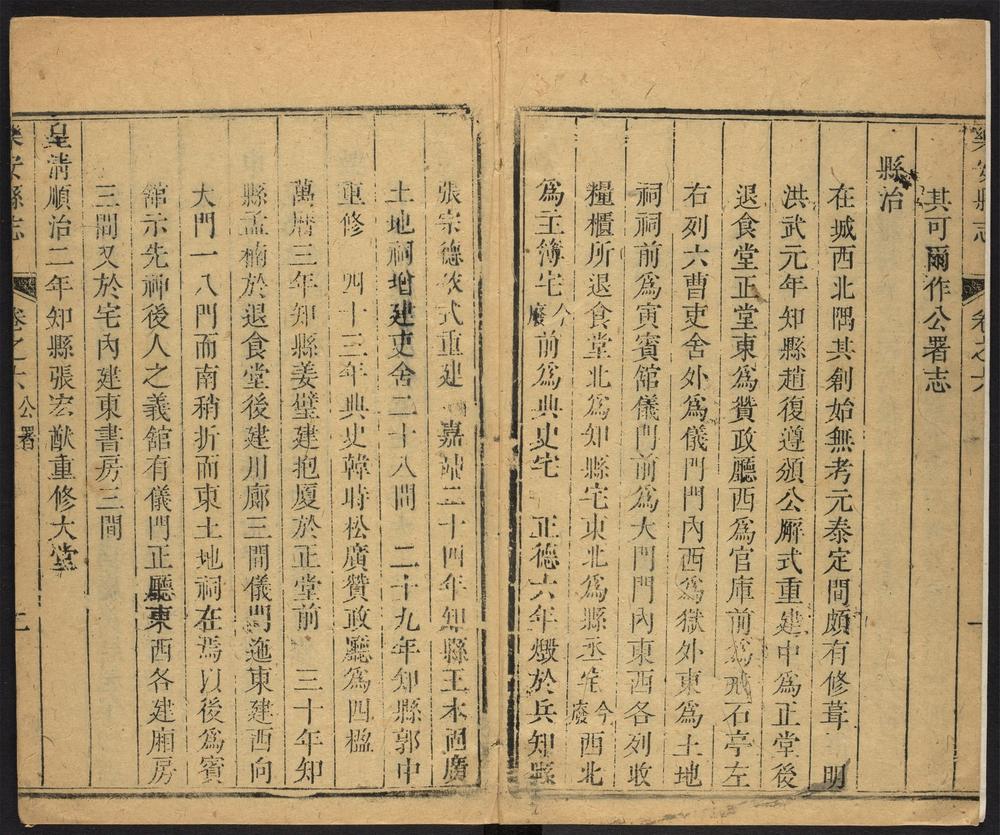 樂安縣志 卷之六 一
其可爾作公署志
縣治
在城西北隅其創始無考元泰定間頗有修葺 明
洪武元年知縣趙復遵頒公廨式重建中為正堂後
退食堂正堂東為贊政廳西為官庫前為戒石亭左
右列六曹吏舍外為儀門門內西為獄外東為土地
祠祠前為寅賓館儀門前為大門門內東西各列收
糧櫃所退食堂北為知縣宅東北為縣丞宅今廢西北
為主簿宅今廢前為典史宅 正德六年燬於兵知縣
張宗德依式重建 嘉靖二十四年知縣王木 廣
土地祠增建吏舍二十八間 二十九年知縣郭中
重修 四十三年典史韓時松廣贊政廳為四楹
萬曆三年知縣姜璧建抱厦於正堂前 三十年知
縣孟楠於退食堂後建川廊三間儀門迤東建西向
大門一入門而南稍折而東土地祠在焉以後為賓
館示先神後人之義館有儀門正廳東西各建廂房
三間又於宅內建東書房三間
皇清順治二年知縣張宏猷重修大堂
樂安縣志 卷之六 公署